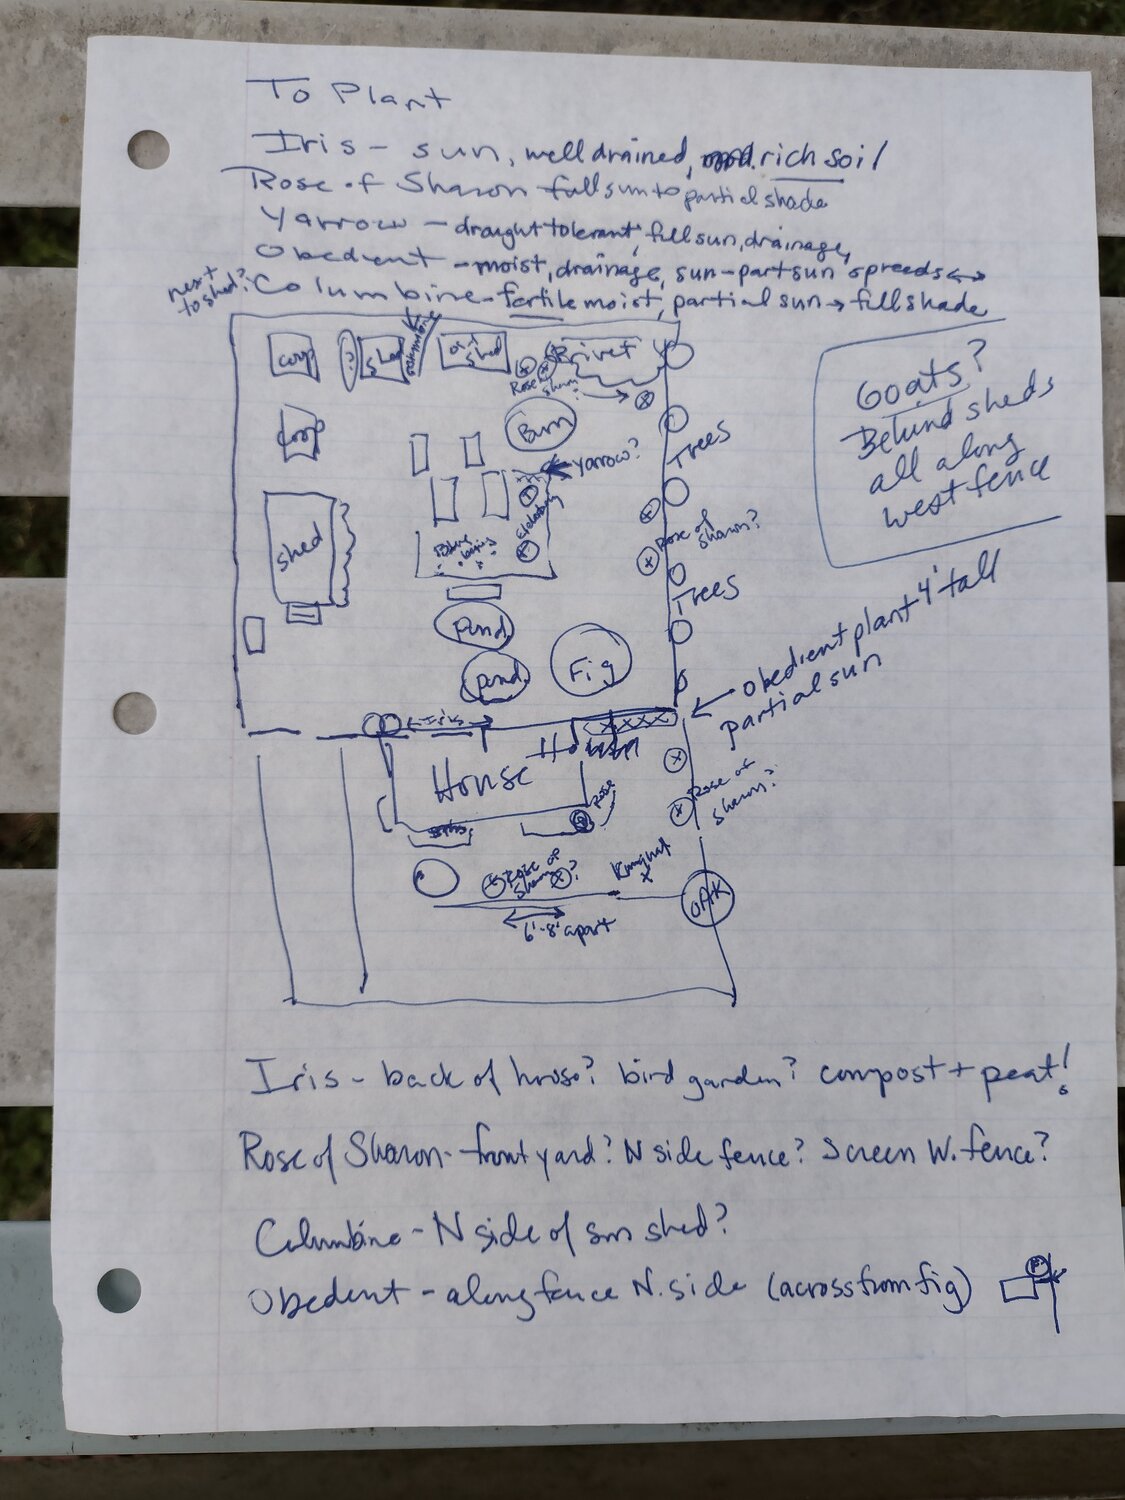 To Plant
Iris - sun, well drained, rich soil
Rose of Sharon full sun to partial shade
Yarrow - draught tolerant, full sun, drainage,
Obedient - moist, drainage, sun-part sun spreeds ↔
next to shed?
Columbine - fertile moist, partial sun → full shade
coop
?
shed
columbine
old shed
Privet
Rose of Sharon?
Goats?
Behind sheds
all along
west fence
coop
Burn
Trees
Yarrow?
Elderberry
Rose of Sharon?
shed
Blue berries
Trees
pond
Fig
pond
obedient plant 4' tall
partial sun
Iris
XXXX
House
Rose
Rose of Sharon?
Rose of Sharon?
Kumquat
x
OAK
6'-8' apart
Iris - back of house? bird garden? compost + peat!
Rose of Sharon - front yard? N side fence? Screen W. fence?
Columbine - N side of sm shed?
Obedent - along fence N. side (across from fig)
F